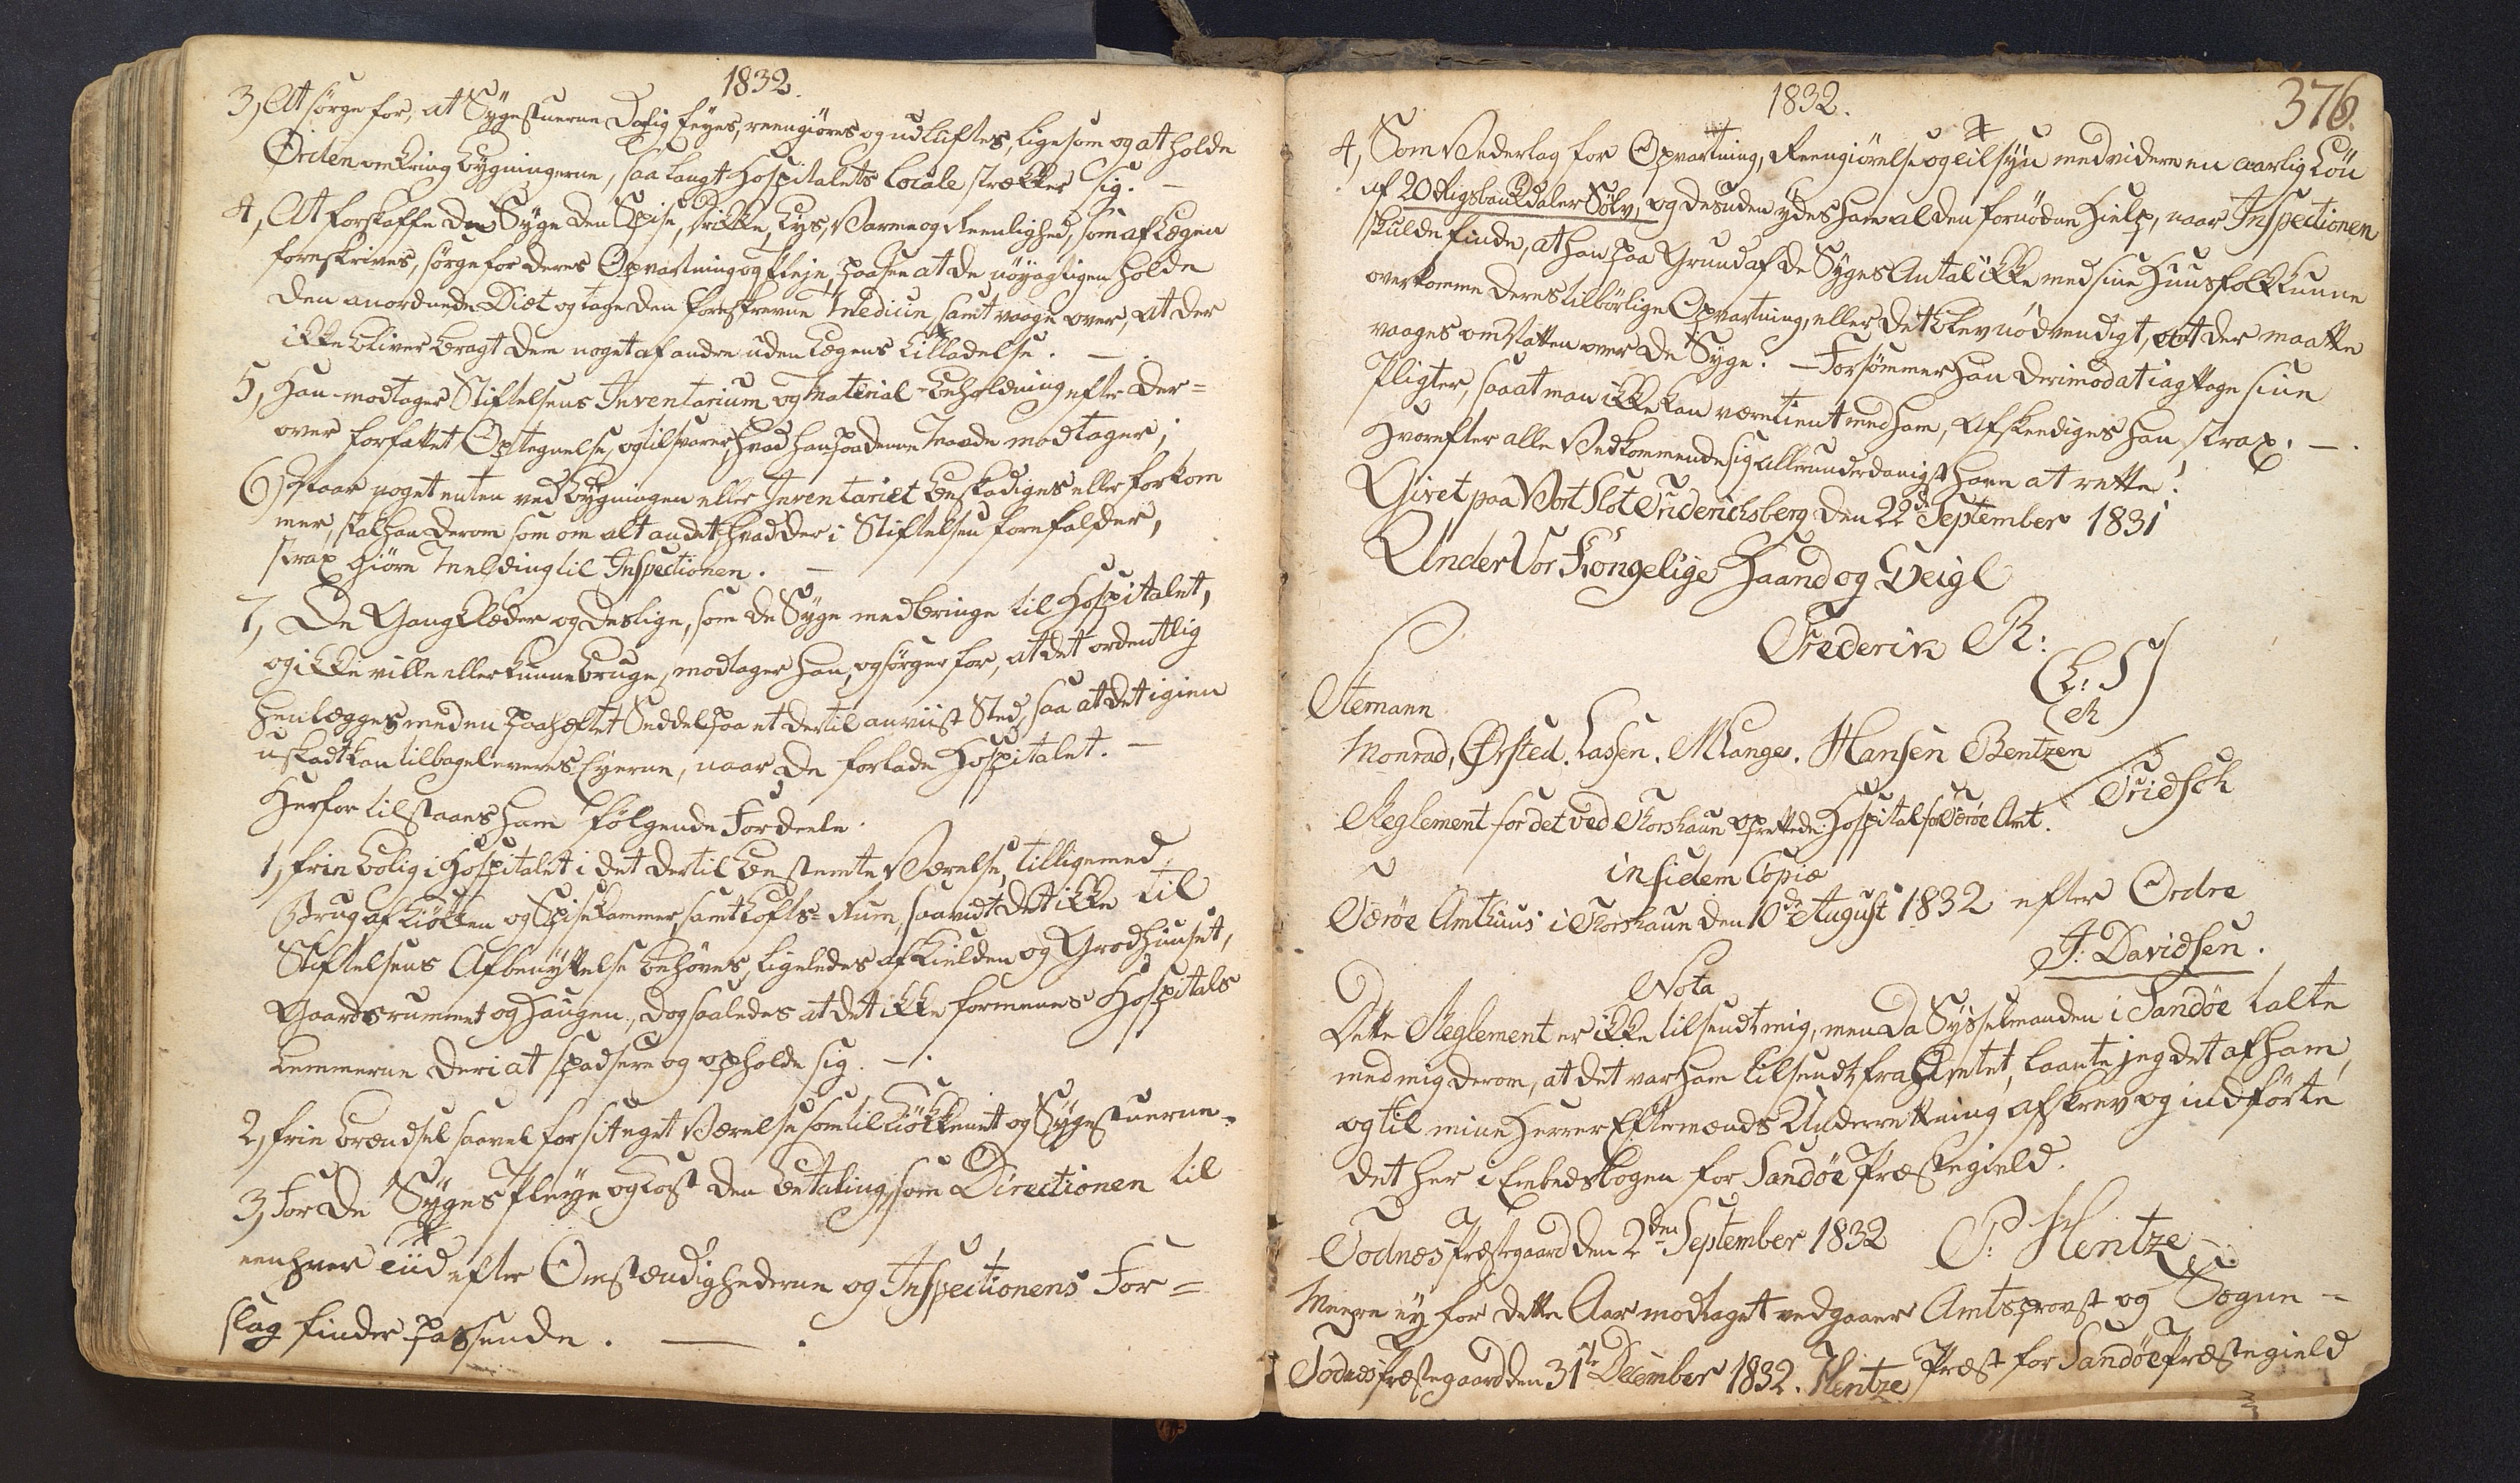 1832.
3, At sörge for, at Sygestuerne daglig feyes, reengiöres og udluftes, ligesom og at holde
Orden omkring bygningerne, saa langt Hospitalets Locale strækker sig. —
4, At forskaffe de Syge den Spise, drikke, Lys, Varme og Reenlighed, som af Lægen
foreskrives, sörge for deres Opvartning og Pleje, paasee at de nöyagtigen holde
den anordnede Diæt og tage den foreskrevne Medicin, samt vaage over, at der
ikke bliver bragt dem noget af andre uden Lægens tilladelse. —
5, Han modtager Stiftelsens Inventarium og Material-beholdning efter der=
over forfattet Optegnelse, og tilsvarer, hvad han paa denne Maade modtager;
6, Naar noget enten ved bygningen eller Inventariet beskadiges eller forkom
mer, skal han derom som om alt andet, hvad der i Stiftelsen forefalder,
strax giöre Melding til Inspectionen. —
7, De Gangklæder og deslige, som de Syge medbringe til Hospitalet,
og ikke ville eller kunne bruge, modtager han, og sörger for, at det ordentlig
henlægges med en paahæftet Seddel paa et dertil anviist Sted, saa at det igien
uskadt kan tilbageleveres Eyerne, naar de forlade Hospitalet. —
Herfor tilstaaes ham følgende Fordeele.
1, frie bolig i Hospitalet i det dertil bestemte Værelse, tilligemed
Brug af Kiökken og Spisekammer, samt Lofts=Rum, saavidt det ikke til
Stiftelsens Afbenyttelse behöves, ligeledes af Kielden og Grodhuuset,
Gaardsrummet og Haugen, dog saaledes at det ikke formenes Hospitals
Lemmerne deri at spadsere og opholde sig. —
2, frie brændsel saavel for sit eget Værelse som til Kiökkenet og Sygestuerne.
3, For de Syges Pleye og Kost den betaling, som Directionen til
eenhver tiid efter Omstændighederne og Inspectionens For=
slag finder passende. — .
1832.
376.
4, Som Vederlag for Opvartning, Reengiörelse og tilsyn med videre en aarlig Lön
af 20 Rigsbankdaler Sölv, og desuden ydes ham al den fornödne Hielp, naar Inspectionen
skulde finde, at han paa Grund af de Syges Antal ikke med sine Huusfolk kunne
overkomme deres tilbörlige Opvartning, eller det blev nödvendigt, at der maatte
vaages om Natten over de Syge. — Forsömmer han derimod at iagttage sine
Pligter, saa at man ikke kan være tient med ham, afskeediges han strax. —
Hvorefter alle Vedkommende sig allerunderdanigst have at rette!
Givet paa Vort Slot Friderichsberg den 22de September 1831
Under Vor Kongelige Haand og Seigl
Frederik R:
(L. S)
Stemann
Monrad, Ørsted. Lassen. MLange. Hansen Bentzen
Fridsch
Reglement for det ved Thorshavn oprettede Hospital for Færöe Amt.
in fidem Copiæ
Færöe Amthuus i Thorshavn den 10de August 1832 efter Ordre
J: Davidsen.
Nota
Dette Reglement er ikke tilsendt mig, men da Sysselmanden i Sandöe talte
med mig derom, at det var ham tilsendt fra Amtet, laante jeg det af ham,
og til mine Herrer Eftermænds Underretning afskrev og indförte
det her i Embedsbogen for Sandöe Præstegield.
Todnes Præstegaard den 2den September 1832 P: Hentze
Meere ey for dette Aar modtaget vedgaaer Amtsprovst og Sogne=
Todnes Præstegaard den 31te December 1832. Hentze Præst for Sandöe Præstegield